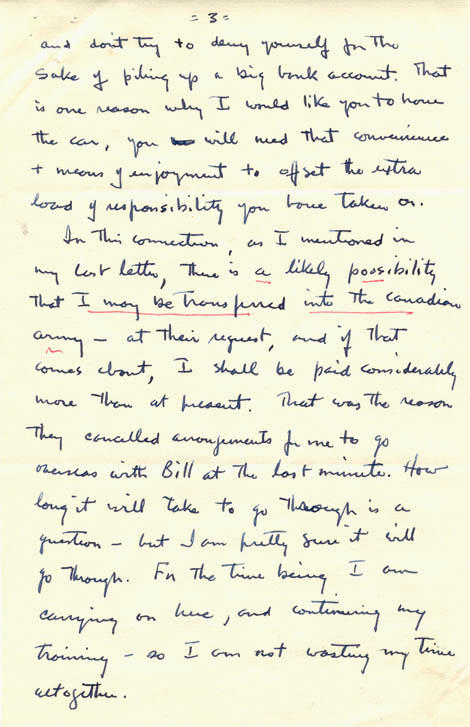 = 3 =
and don't try to deny yourself for the
sake of piling up a big bank account. That
is one reason why I would like you to have
the car, you will need that convenience
+ means of enjoyment to offset the extra
load of responsibility you have taken on.
In this connection, as I mentioned in
my last letter, there is a likely possibility
that I may be transferred into the Canadian
army – at their request, and if that
comes about, I shall be paid considerably
more than at present. That was the reason
they cancelled arrangements for me to go
overseas with Bill at the last minute. How
long it will take to go through is a
question – but I am pretty sure it will
go through. For the time being I am
carrying on here, and continuing my
training – so I am not wasting my time
altogether.